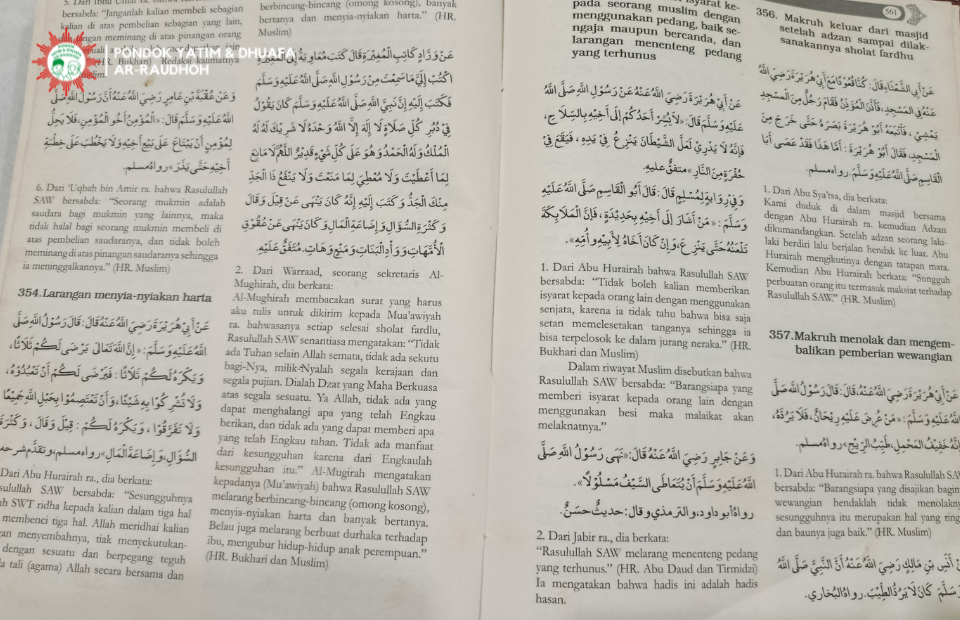 5. Dari Ibnu Umar ra. bahwa
bersabda: "Janganlah kalian membeli sebagian
kalian di atas pembelian sebagian yang lain,
meminang di atas pinangan orang
Redaksi kalimatnya
PONDOK YATIM & DHUAFA
AR-RAUDHOH
وَعَنْ عُقْبَةَ بْنِ عَامِرٍ رَضِيَ اللهُ عَنْهُ أَنَّ رَسُولَ اللهِ صَلَّى
اللهُ عَلَيْهِ وَسَلَّمَ قَالَ: «الْمُؤْمِنُ أَخُو الْمُؤْمِنِ، فَلَا يَحِلُّ
لِمُؤْمِنٍ أَنْ يَبْتَاعَ عَلَى بَيْعِ أَخِيْهِ وَلَا يَخْطُبَ عَلَى خِطْبَةِ
أَخِيْهِ حَتَّى يَذَرَ» رواه مسلم.
6. Dari 'Uqbah bin Amir ra. bahwa Rasulullah
SAW bersabda: "Seorang mukmin adalah
saudara bagi mukmin yang lainnya, maka
tidak halal bagi seorang mukmin membeli di
atas pembelian saudaranya, dan tidak boleh
meminang di atas pinangan saudaranya sehingga
ia meninggalkannya." (HR. Muslim)
354.Larangan menyia-nyiakan harta
عَنْ أَبِيْ هُرَيْرَةَ رَضِيَ اللهُ عَنْهُ قَالَ: قَالَ رَسُوْلُ اللهِ صَلَّى
اللهُ عَلَيْهِ وَسَلَّمَ: «إِنَّ اللهَ تَعَالَى يَرْضَى لَكُمْ ثَلَاثًا،
وَيَكْرَهُ لَكُمْ ثَلَاثًا: فَيَرْضَى لَكُمْ أَنْ تَعْبُدُوْهُ،
وَلَا تُشْرِكُوْا بِهِ شَيْئًا، وَأَنْ تَعْتَصِمُوْا بِحَبْلِ اللهِ جَمِيْعًا
وَلَا تَفَرَّقُوْا، وَيَكْرَهُ لَكُمْ: قِيْلَ وَقَالَ، وَكَثْرَةَ
السُّؤَالِ، وَإِضَاعَةَ الْمَالِ» رواه مسلم، وتقدم شرحه
Dari Abu Hurairah ra., dia berkata:
SAW bersabda: "Sesungguhnya
SWT ridha kepada kalian dalam tiga hal
membenci tiga hal. Allah meridhai kalian
menyembahnya, tiak menyekutukan-
dengan sesuatu dan berpegang teguh
tali (agama) Allah secara bersama dan
berbincang-bincang (omong kosong), banyak
bertanya dan menyia-nyiakan harta." (HR.
Muslim)
عَنْ وَرَّادٍ كَاتِبِ الْمُغِيْرَةِ قَالَ كَتَبَ مُعَاوِيَةُ إِلَى الْمُغِيْرَةِ
اكْتُبْ إِلَيَّ مَا سَمِعْتَ مِنْ رَسُوْلِ اللهِ صَلَّى اللهُ عَلَيْهِ وَسَلَّمَ
فَكَتَبَ إِلَيْهِ إِنَّ نَبِيَّ اللهِ صَلَّى اللهُ عَلَيْهِ وَسَلَّمَ كَانَ يَقُوْلُ
فِيْ دُبُرِ كُلِّ صَلَاةٍ لَا إِلٰهَ إِلَّا اللهُ وَحْدَهُ لَا شَرِيْكَ لَهُ لَهُ
الْمُلْكُ وَلَهُ الْحَمْدُ وَهُوَ عَلَى كُلِّ شَيْءٍ قَدِيْرٌ اللَّهُمَّ لَا مَانِعَ
لِمَا أَعْطَيْتَ وَلَا مُعْطِيَ لِمَا مَنَعْتَ وَلَا يَنْفَعُ ذَا الْجَدِّ
مِنْكَ الْجَدُّ وَكَتَبَ إِلَيْهِ إِنَّهُ كَانَ يَنْهَى عَنْ قِيْلَ وَقَالَ
وَكَثْرَةِ السُّؤَالِ وَإِضَاعَةِ الْمَالِ وَكَانَ يَنْهَى عَنْ عُقُوْقِ
الْأُمَّهَاتِ وَوَأْدِ الْبَنَاتِ وَمَنْعٍ وَهَاتِ. مُتَّفَقٌ عَلَيْهِ.
2. Dari Warraad, seorang sekretaris Al-
Mughirah, dia berkata:
Al-Mughirah membacakan surat yang harus
aku tulis untuk dikirim kepada Mua'awiyah
ra. bahwasanya setiap selesai sholat fardlu,
Rasulullah SAW senantiasa mengatakan: "Tidak
ada Tuhan selain Allah semata, tidak ada sekutu
bagi-Nya, milik-Nyalah segala kerajaan dan
segala pujian. Dialah Dzat yang Maha Berkuasa
atas segala sesuatu. Ya Allah, tidak ada yang
dapat menghalangi apa yang telah Engkau
berikan, dan tidak ada yang dapat memberi apa
yang telah Engkau tahan. Tidak ada manfaat
dari kesungguhan karena dari Engkaulah
kesungguhan itu." Al-Mugirah mengatakan
kepadanya (Mu'awiyah) bahwa Rasulullah SAW
melarang berbincang-bincang (omong kosong),
menyia-nyiakan harta dan banyak bertanya.
Belau juga melarang berbuat durhaka terhadap
ibu, mengubur hidup-hidup anak perempuan."
(HR. Bukhari dan Muslim)
isyarat ke-
pada seorang muslim dengan
menggunakan pedang, baik se-
ngaja maupun bercanda, dan
larangan menenteng pedang
yang terhunus
عَنْ أَبِيْ هُرَيْرَةَ رَضِيَ اللهُ عَنْهُ عَنْ رَسُوْلِ اللهِ صَلَّى اللهُ
عَلَيْهِ وَسَلَّمَ قَالَ: «لَا يُشِرْ أَحَدُكُمْ إِلَى أَخِيْهِ بِالسِّلَاحِ،
فَإِنَّهُ لَا يَدْرِيْ لَعَلَّ الشَّيْطَانَ يَنْزِعُ فِيْ يَدِهِ، فَيَقَعَ فِيْ
حُفْرَةٍ مِنَ النَّارِ» متفق عليه.
وَفِيْ رِوَايَةٍ لِمُسْلِمٍ قَالَ: قَالَ أَبُو الْقَاسِمِ صَلَّى اللهُ عَلَيْهِ
وَسَلَّمَ: «مَنْ أَشَارَ إِلَى أَخِيْهِ بِحَدِيْدَةٍ، فَإِنَّ الْمَلَائِكَةَ
تَلْعَنُهُ حَتَّى يَنْزِعَ، وَإِنْ كَانَ أَخَاهُ لِأَبِيْهِ وَأُمِّهِ».
1. Dari Abu Hurairah bahwa Rasulullah SAW
bersabda: "Tidak boleh kalian memberikan
isyarat kepada orang lain dengan menggunakan
senjata, karena ia tidak tahu bahwa bisa saja
setan memelesetakan tanganya sehingga ia
bisa terpelosok ke dalam jurang neraka." (HR.
Bukhari dan Muslim)
Dalam riwayat Muslim disebutkan bahwa
Rasulullah SAW bersabda: "Barangsiapa yang
memberi isyarat kepada orang lain dengan
menggunakan besi maka malaikat akan
melaknatnya."
وَعَنْ جَابِرٍ رَضِيَ اللهُ عَنْهُ قَالَ: «نَهَى رَسُوْلُ اللهِ صَلَّى
اللهُ عَلَيْهِ وَسَلَّمَ أَنْ يُتَعَاطَى السَّيْفُ مَسْلُوْلًا».
رواه أبو داود، والترمذي وقال: حديثٌ حسنٌ.
2. Dari Jabir ra., dia berkata:
"Rasulullah SAW melarang menenteng pedang
yang terhunus." (HR. Abu Daud dan Tirmidzi)
Ia mengatakan bahwa hadis ini adalah hadis
hasan.
561
356. Makruh keluar dari masjid
setelah adzan sampai dilak-
sanakannya sholat fardhu
عَنْ أَبِي الشَّعْثَاءِ قَالَ: كُنَّا قُعُوْدًا مَعَ أَبِيْ هُرَيْرَةَ رَضِيَ اللهُ
عَنْهُ فِي الْمَسْجِدِ، فَأَذَّنَ الْمُؤَذِّنُ فَقَامَ رَجُلٌ مِنَ الْمَسْجِدِ
يَمْشِيْ، فَأَتْبَعَهُ أَبُوْ هُرَيْرَةَ بَصَرَهُ حَتَّى خَرَجَ مِنَ
الْمَسْجِدِ، فَقَالَ أَبُوْ هُرَيْرَةَ: أَمَّا هٰذَا فَقَدْ عَصَى أَبَا
الْقَاسِمِ صَلَّى اللهُ عَلَيْهِ وَسَلَّمَ. رواه مسلم.
1. Dari Abu Sya'tsa, dia berkata:
Kami duduk di dalam masjid bersama
dengan Abu Hurairah ra. kemudian Adzan
dikumandangkan. Setelah adzan seorang laki-
laki berdiri lalu berjalan hendak ke luar. Abu
Hurairah mengikutinya dengan tatapan mata.
Kemudian Abu Hurairah berkata: "Sungguh
perbuatan orang itu termasuk maksiat terhadap
Rasulullah SAW." (HR. Muslim)
357.Makruh menolak dan mengem-
balikan pemberian wewangian
عَنْ أَبِيْ هُرَيْرَةَ رَضِيَ اللهُ عَنْهُ، قَالَ: قَالَ رَسُوْلُ اللهِ صَلَّى
اللهُ عَلَيْهِ وَسَلَّمَ: «مَنْ عُرِضَ عَلَيْهِ رَيْحَانٌ، فَلَا يَرُدَّهُ،
فَإِنَّهُ خَفِيْفُ الْمَحْمِلِ، طَيِّبُ الرِّيْحِ» رواه مسلم.
1. Dari Abu Hurairah ra. bahwa Rasulullah
bersabda: "Barangsiapa yang disajikan
wewangian hendaklah tidak menolaknya
sesungguhnya itu merupakan hal yang
dan baunya juga baik." (HR. Muslim)
أَنَسِ بْنِ مَالِكٍ رَضِيَ اللهُ عَنْهُ أَنَّ النَّبِيَّ صَلَّى اللهُ
وَسَلَّمَ كَانَ لَا يَرُدُّ الطِّيْبَ. رواه البخاري.